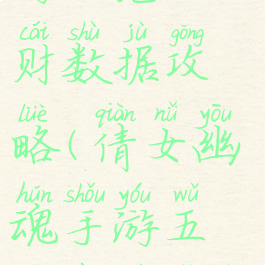 cái shù jù gōng
财数据攻
lüè qiàn nǚ yōu
略(倩女幽
hún shǒu yóu wǔ
魂手游五